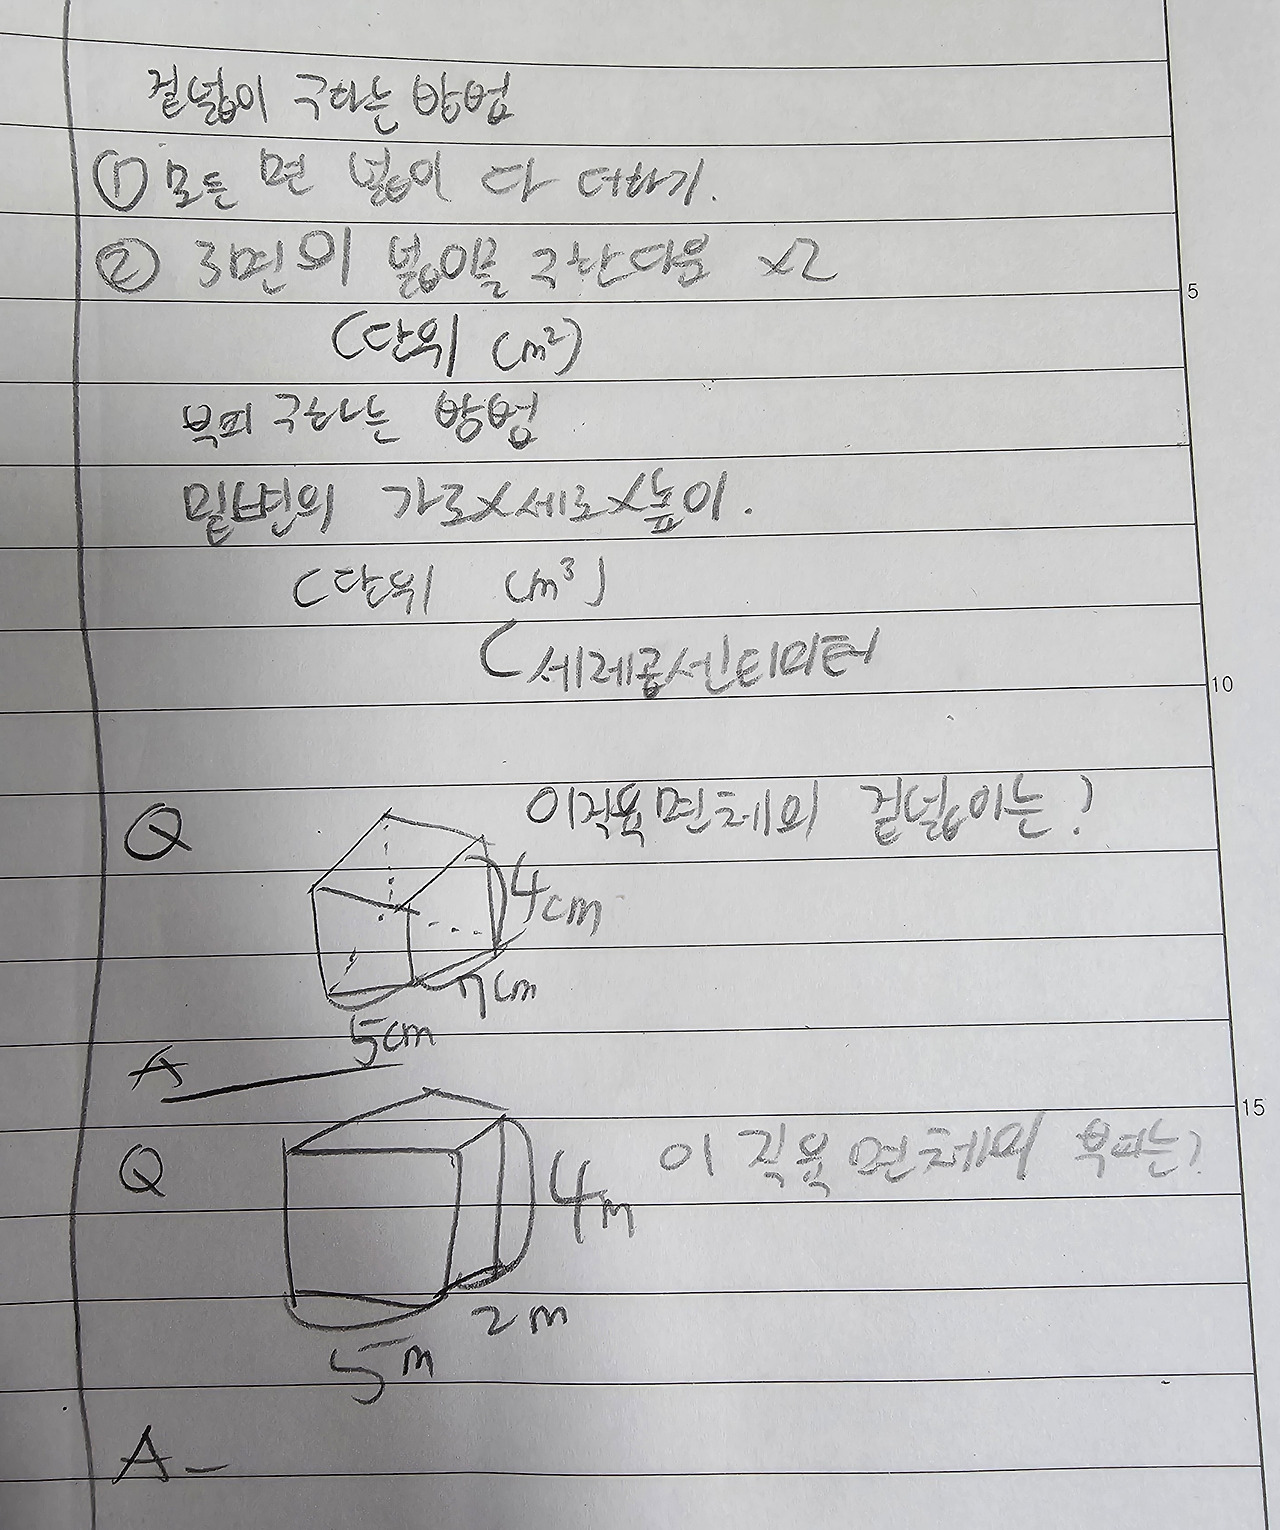 겉넓이 구하는 방법
① 모든 면 넓이 다 더하기.
② 3면의 넓이를 구한다음 ×2
(단위 cm²)
5
부피 구하는 방법
밑변의 가로×세로×높이.
(단위 cm³)
(세제곱센티미터
10
Q 이직육면체의 겉넓이는?
4cm
7cm
5cm
A
15
Q 이 직육면체의 부피는?
4m
2m
5m
A